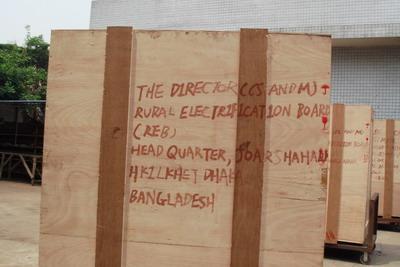 THE DIRECTOR (CS AND M)
RURAL ELECTRIFICATION BOARD
(REB)
HEAD QUARTER, JOARSHAHARA
HKILKHET DHAKA
BANGLADESH